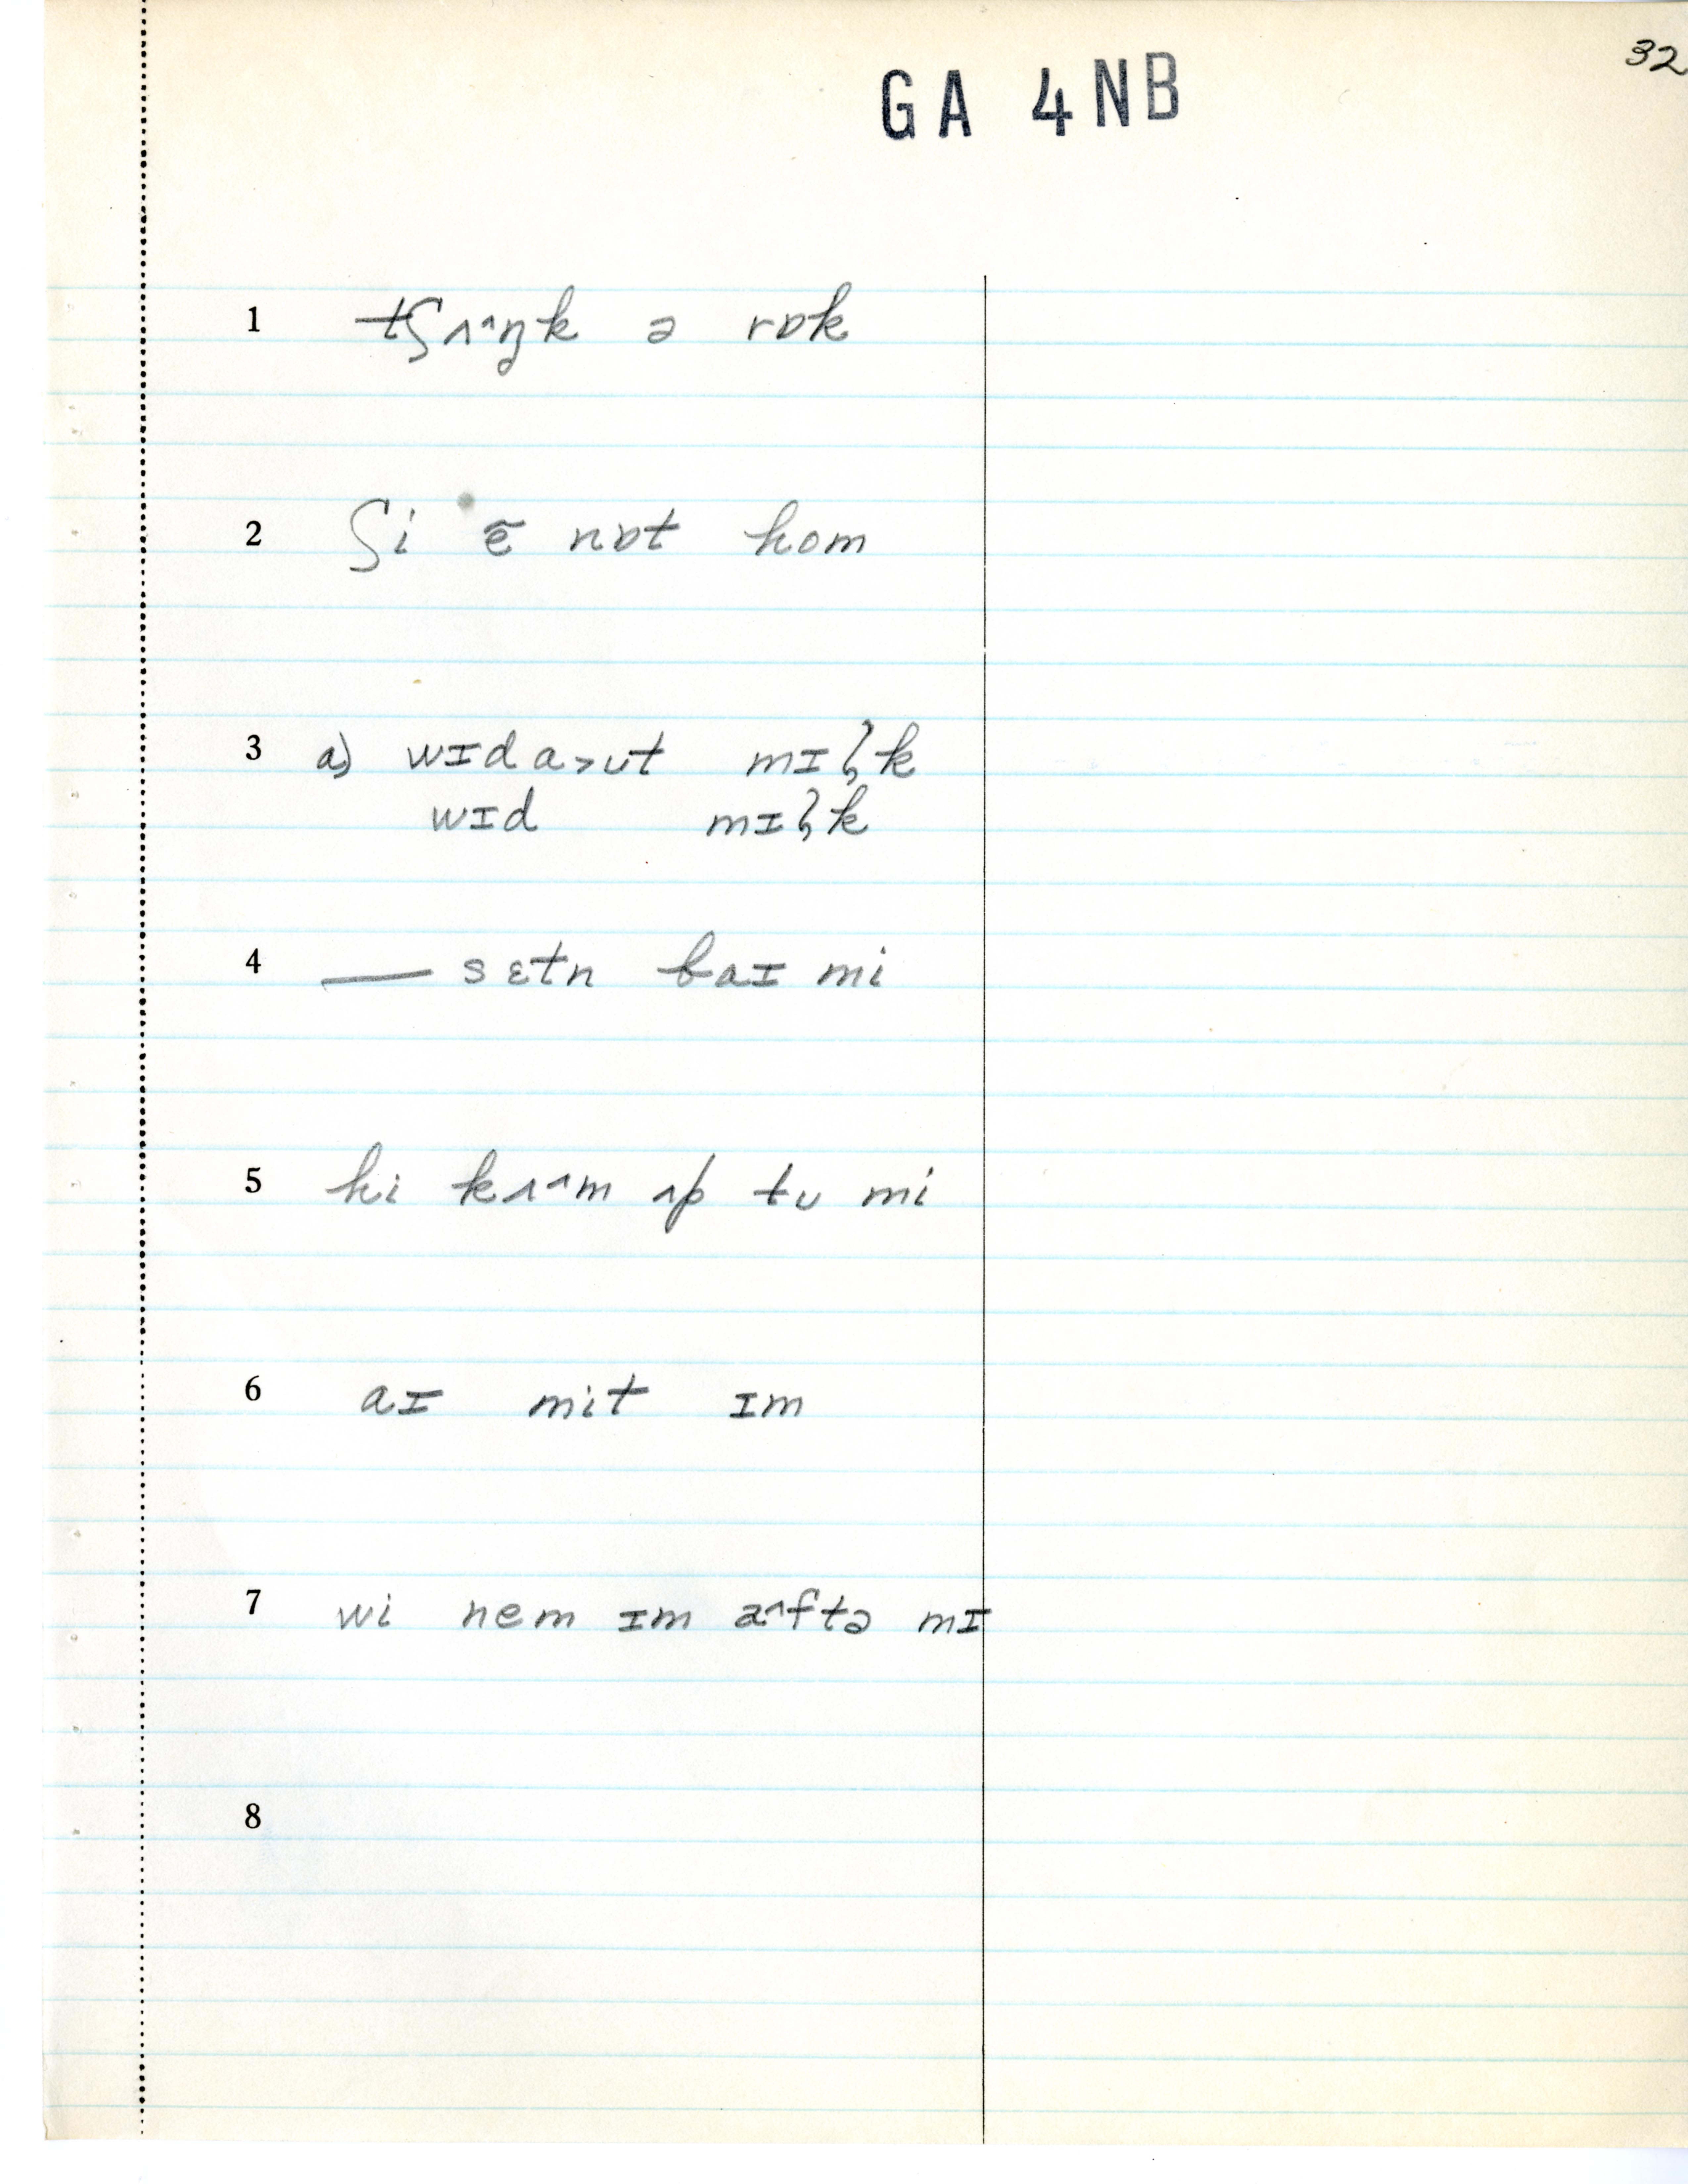 32
GA 4NB
1 tʃʌ^ŋk ə rɒk
2 ʃi ẽ nɒt hom
3 a) wɪda>ut mɪɫk
wɪd mɪɫk
4 — sɛtn baɪ mi
5 hi kʌ^m ʌp tʊ mi
6 aɪ mit ɪm
7 wi nem ɪm a^ftə mɪ
8